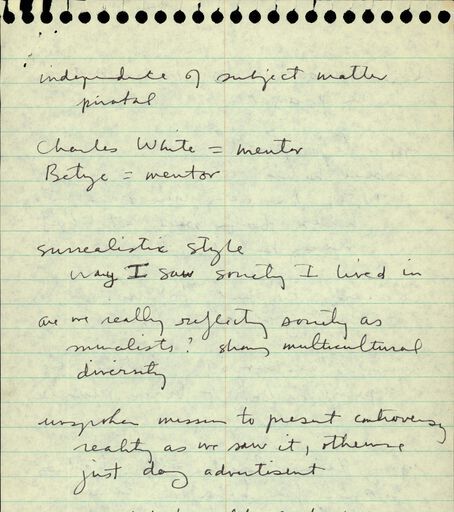 independence of subject matter
pivotal
Charles White = mentor
Betye = mentor
surrealistic style
way I saw society I lived in
are we really reflecting society as
muralists? showing multicultural
diversity
unspoken mission to present controversy
reality as we saw it, otherwise
just doing advertisement